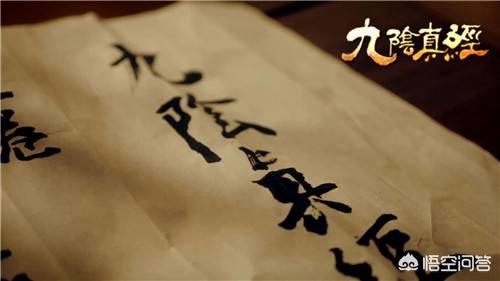 九陰真經
九陰真經
悟空问答